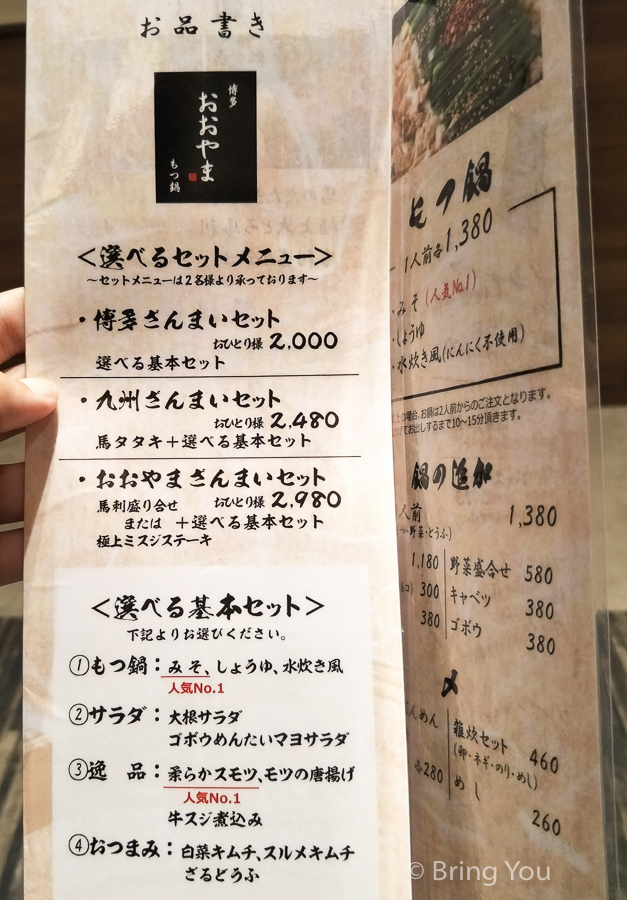 お品書き
博多
おおやま
もつ鍋
＜選べるセットメニュー＞
～セットメニューは2名様より承っております～
・博多ざんまいセット
おひとり様 2,000
選べる基本セット
・九州ざんまいセット
おひとり様 2,480
馬タタキ＋選べる基本セット
・おおやまざんまいセット
馬刺盛り合せ おひとり様 2,980
または ＋選べる基本セット
極上ミスジステーキ
＜選べる基本セット＞
下記よりお選びください。
①もつ鍋：みそ、しょうゆ、水炊き風
人気No.1
②サラダ：大根サラダ
ゴボウめんたいマヨサラダ
③逸 品：柔らかスモツ、モツの唐揚げ
人気No.1
牛スジ煮込み
④おつまみ：白菜キムチ、スルメキムチ
ざるどうふ
もつ鍋
1人前各1,380
・みそ(人気No.1)
・しょうゆ
・水炊き風(にんにく不使用)
場合、お鍋は2人前からのご注文となります。
お出しするまで10～15分頂きます。
鍋の追加
人前 1,380
野菜・とうふ)
1,180
300
380
野菜盛合せ 580
キャベツ 380
ゴボウ 380
〆
めん
各280
雑炊セット 460
(卵・ネギ・のり・めし)
めし 260
© Bring You